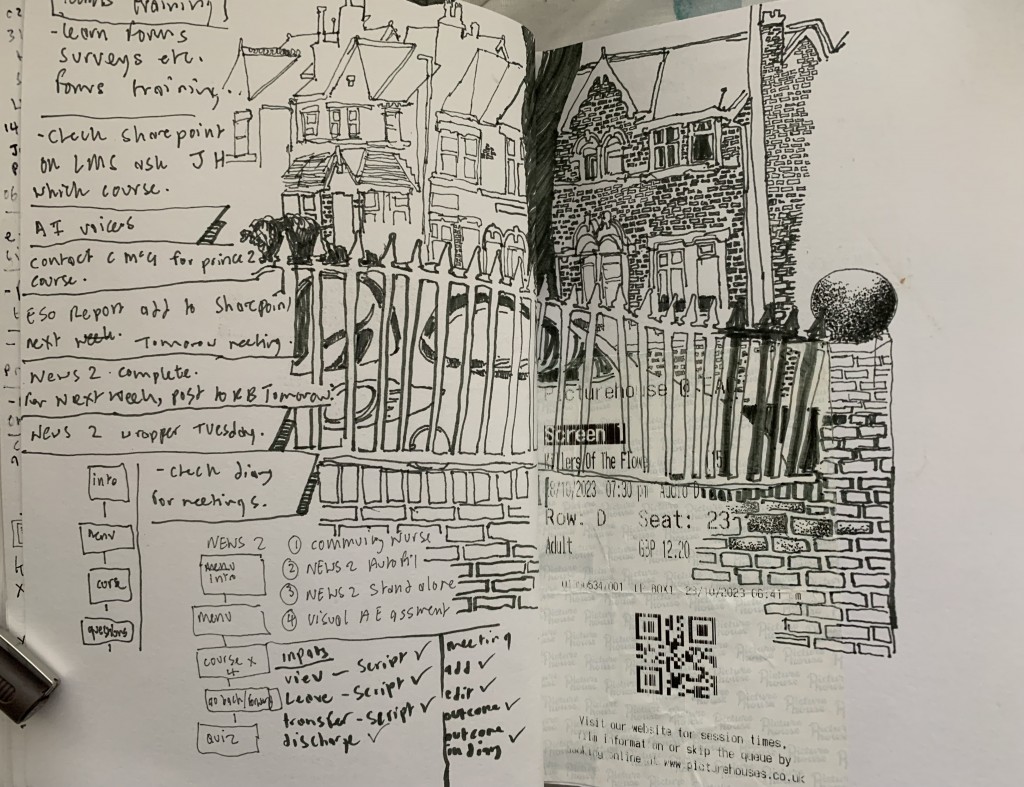 Training
- learn forms
surveys etc.
forms training..
- Check sharepoint
on LMS ask JH
which course.
AI voices
contact C McG for prince 2
course.
ESO Report add to Sharepoint
next week. Tomorrow meeting.
News 2 - complete.
for Next week, post to KB Tomorrow.
News 2 wrapper Tuesday.
- Check diary
for meetings.
intro
menu
questions
NEWS 2
menu
intro
menu
course x
4
go back/forward
Quiz
① community nurse
② NEWS 2
③ NEWS 2 Standalone
④ Visual AE assment
inputs
view - Script ✓
Leave - Script ✓
transfer - Script ✓
discharge ✓
meeting
add ✓
edit ✓
outcome ✓
outcome
in diary ✓
Picturehouse
Screen 1
Killers Of The Flow
15
28/10/2023 07:30 pm Audio D
Row: D Seat: 23
Adult GBP 12.20
23/10/2023 06:41
Visit our website for session times,
film information or skip the queue by
booking online at www.picturehouses.co.uk